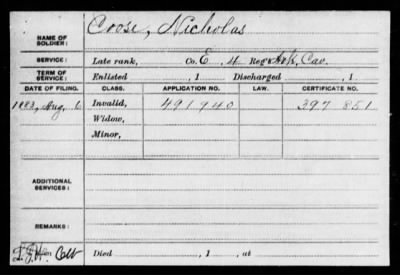 NAME OF SOLDIER: Coose, Nicholas
SERVICE: Late rank, Co. E, 4 Reg't Ark. Cav.
TERM OF SERVICE: Enlisted , 1 Discharged , 1
DATE OF FILING. CLASS. APPLICATION NO. LAW. CERTIFICATE NO.
1883, Aug. 6 Invalid, 491940 397 851
Widow,
Minor,
ADDITIONAL SERVICES:
REMARKS:
Died , 1 , at